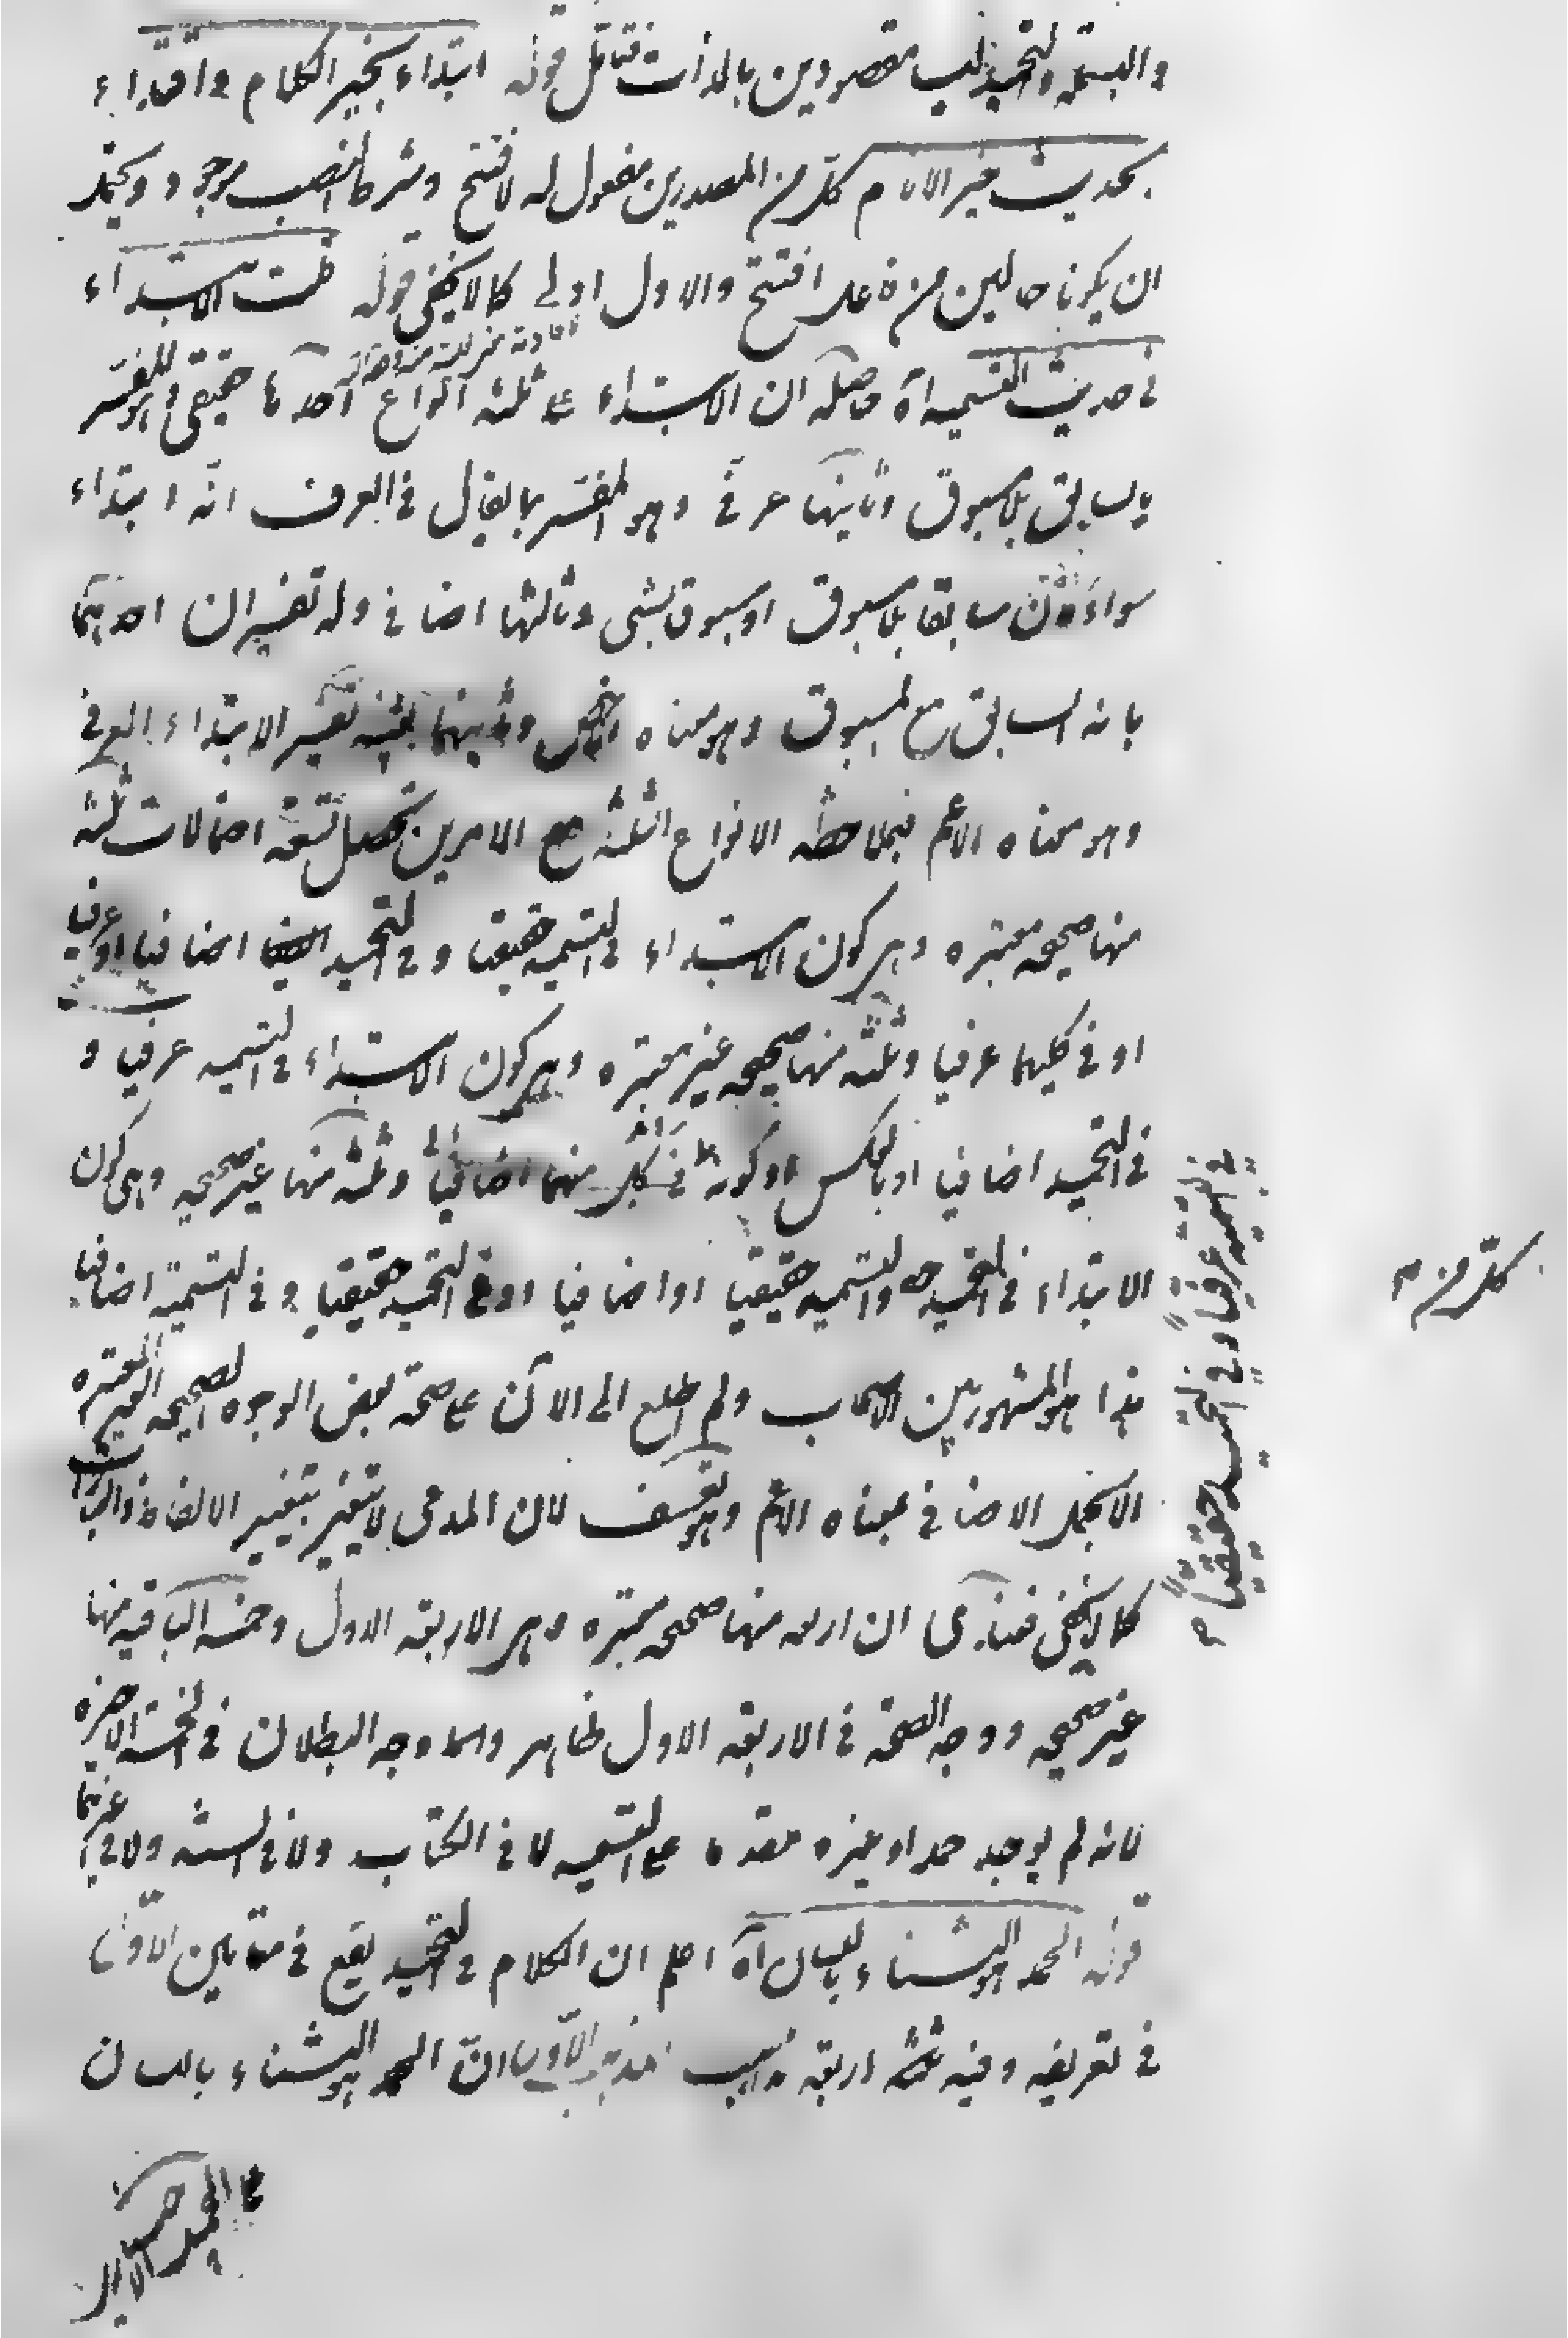 والبسملة والتحميد ليسا مقصودين بالذات فتأمل قوله ابتداء بخير الكلام واقتداء
بحديث خير الانام كل من المصدرين مفعول له لافتتح وشرط النصب موجود ويحتمل
ان يكونا حالين من فاعل افتتح والاول اولى كما لا يخفى قوله قلت الابتداء
في حديث التسمية آه حاصله ان الابتداء على ثلثة انواع احدها حقيقي وهو المفسر
بالسابق بلا مسبوق وثانيها عرفي وهو المفسر بما يقال في العرف انه ابتداء
سواء كان سابقا بلا مسبوق او مسبوق بشئ وثالثها اضافي وله تفسيران احدهما
بانه السابق مع المسبوق وهو معناه الاخص وثانيهما بعينه تفسير الابتداء العرفي
وهو معناه الاعم فبملاحظة الانواع الثلثة مع الامرين تحصل تسعة احتمالات ثلثة
منها صحيحه معتبره وهي كون الابتداء في التسميه حقيقيا وفي التحميد اضافيا او عرفيا
او في كليهما عرفيا وثلثة منها صحيحه غير معتبره وهي كون الابتداء في التسميه عرفيا و
في التحميد اضافيا او بالعكس او كونه في كل منهما اضافيا وثلثة منها غير صحيحه وهي كون
الابتداء في التحميد والتسميه حقيقيا او اضافيا او في التحميد حقيقيا وفي التسمية اضافيا
هذا هو المشهور بين الاصحاب ولم اطلع الى الآن على صحة بعض الوجوه الصحيحه الغير المعتبره
الا بحمل الاضافي بمعناه الاعم وهو تعسف لان المدعى لا يتغير بتغيير الالفاظ والعبارات
كما لا يخفى فعندى ان اربعه منها صحيحه معتبره وهي الاربعة الاول وخمسه الباقيه منها
غير صحيحه ووجه الصحة في الاربعة الاول ظاهر واما وجه البطلان في الخمسة الاخيره
لانه لم يوجد حمد او غيره مقدما على التسميه لا في الكتاب ولا في السنة ولا في غيرهما
قوله الحمد هو الثناء باللسان آه اعلم ان الكلام في التحميد يقع في مقامين الاول
في تعريفه وفيه اربعة مذاهب الاول ان الحمد هو الثناء باللسان
في التسميه عرفيا وفي التحميد حقيقيا
كل من